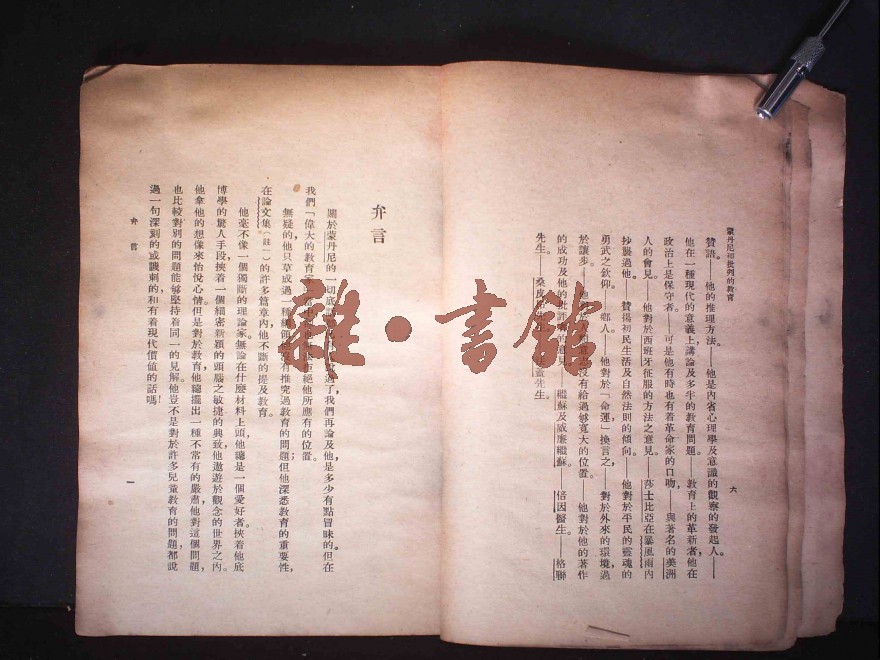 蒙丹尼和批判的教育
六
贊語。——他的推理方法。——他是內省心理學及意識的觀察的發起人。——
他在一種現代的意義上,講論及多半的教育問題。——教育上的革新者,他在
政治上是保守者。——可是他有時也有着革命家的口吻,——與著名的美洲
人的會見。——他對於西班牙征服的方法之意見。——莎士比亞在暴風雨內
抄襲過他。——贊揚初民生活及自然法則的傾向。——他對於平民的靈魂的
勇武之欽仰。——鄉人。——他對於「命運」換言之,——對於外來的環境過
於讓步。——他 沒有給過够寬大的位置。——他對於他的著作
的成功及他的批評 的意見。——盧蘇及威廉盧蘇。——倍因醫生。——格聯
先生。——桑皮 先生。
弁言
關於蒙丹尼的一切 過了,我們再論及他,是多少有點冒昧的。但在
我們「偉大的教育家 中, 拒絕他所應有的位置。
無疑的,他只草成過一種 沒有推究過教育的問題;但他深悉教育的重要性,
在論文集(註一)的許多篇章內,他不斷的提及教育。
他毫不像一個獨斷的理論家。無論在什麼材料上頭,他總是一個愛好者。挾着他底
博學的驚人手段,挾着一個細密新穎的頭腦之敏捷的興致,他遨遊於觀念的世界之內。
他拿他的想像來怡悅心情。但是對於教育,他總擺出一種不常有的嚴肅,他對這個問題,
也比較對別的問題能够堅持着同一的見解。他豈不是對於許多兒童教育的問題,都說
過一句深刻的或譏刺的,和有着現代價值的話嗎!
弁言
一
雜·書館